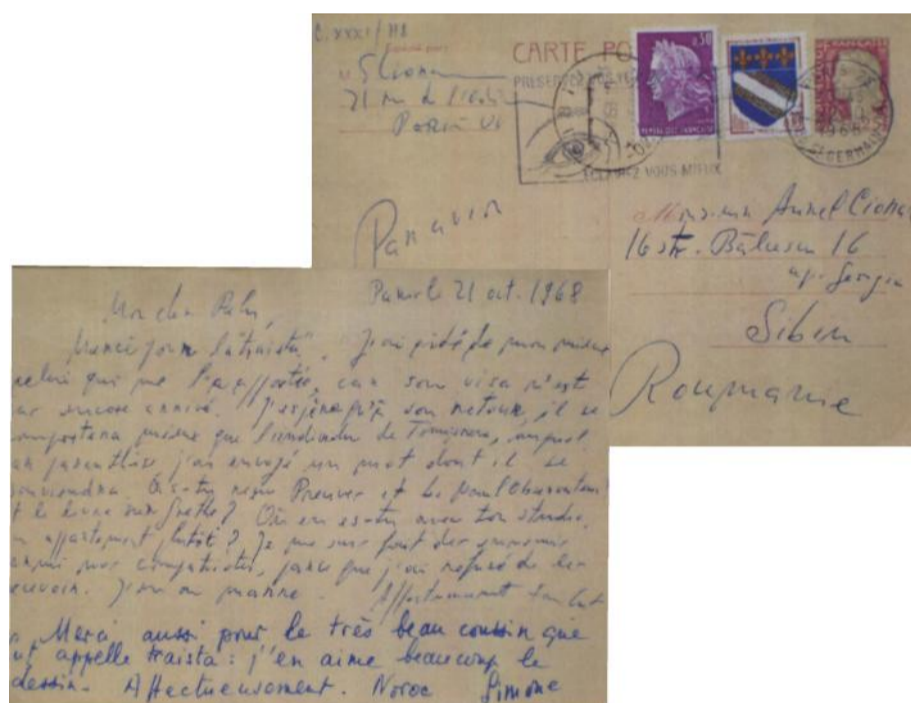 C. XXXI/
CARTE PO
M
21 rue de l'
Paris VI
0,50
REPUBLIQUE FRANCAISE
1968
ST GERMAIN
ECLAIREZ VOUS MIEUX
Par avion
Monsieur Aurel Cioran
16 str. Bălcescu 16
ap. Georgiu
Sibiu
Roumanie
Paris le 21 oct. 1968
Mon cher Relu,
Merci pour la "traista". J'ai aidé de mon mieux
celui qui me l'a apportée, car son visa n'est
pas encore arrivé. J'espère qu'à son retour, il se
comportera mieux que l'individu de Timișoara, auquel,
par parenthèse j'ai envoyé un mot dont il se
souviendra. As-tu reçu Preuves et Le Nouvel Observateur
et le livre sur Goethe? Où en es-tu avec ton studio,
appartement plutôt? Je me suis fait des ennemis
parmi nos compatriotes, parce que j'ai refusé de les
recevoir. J'en ai marre. Affectueusement
Merci aussi pour le très beau coussin que
appelle traista: j'en aime beaucoup le
dessin. Affectueusement. Noroc Simone